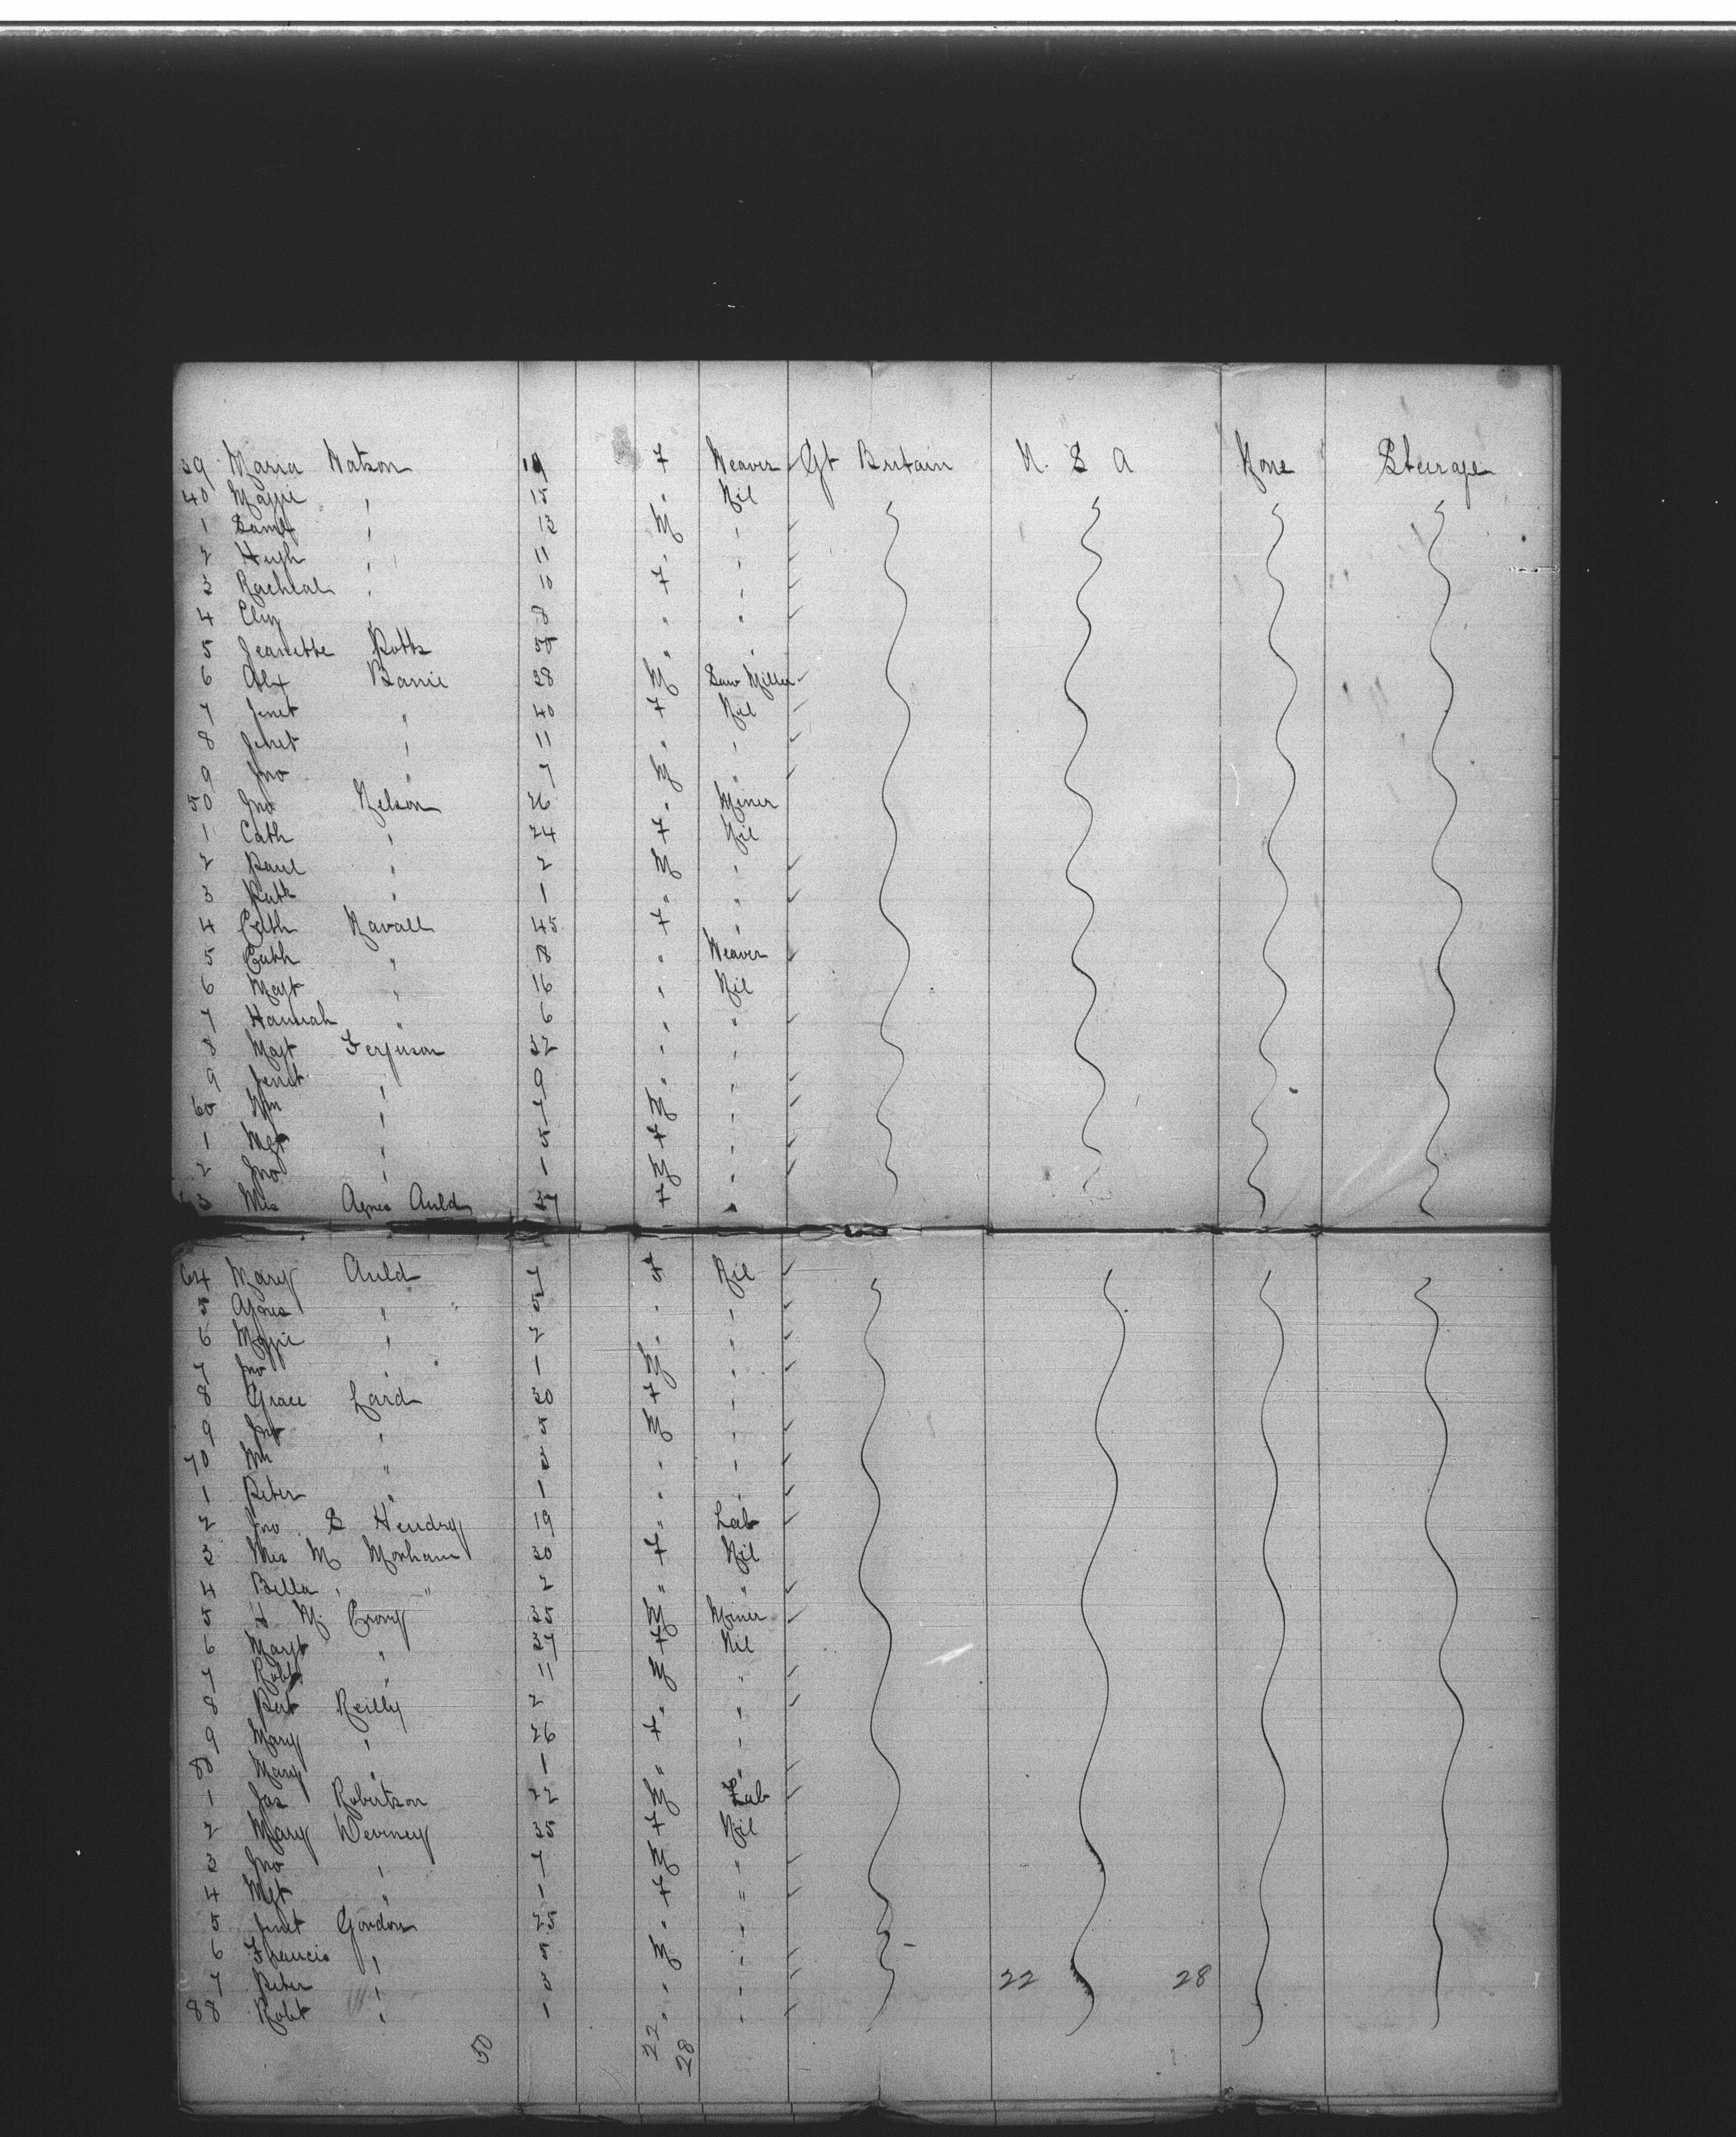 39 Maria Watson 19 F Weaver Gt Britain U. S A None Steerage
40 Maggie " 15 " Nil
1 Saml " 13 M "
2 Hugh " 11 " "
3 Racheal " 10 F "
4 Eliz " 8 " "
5 Jeanette Potts 50 " "
6 Alex Barrie 38 M Saw Miller
7 Jenet " 40 F Nil
8 Jenet " 11 " "
9 Jno " 7 M "
50 Jno Nelson 26 " Miner
1 Cath " 24 F Nil
2 Paul " 2 M "
3 " 1 " "
4 Cath Navall 45 F "
5 Cath " 18 " Weaver
6 Magt " 16 " Nil
7 Hannah " 6 " "
8 Magt Ferguson 32 " "
9 Jenet " 9 " "
60 Wm " 7 M "
1 Mgt " 5 F "
2 Jno " 1 M "
63 Mrs Agnes Auld 37 F "
64 Mary Auld 7 F Nil
5 Agnes " 5 " "
6 Maggie " 2 " "
7 Jno " 1 M "
8 Grace Laird 30 F "
9 Jno " 5 M "
70 Wm " 3 " "
1 Peter " 1 " "
2 Jno S Hendry 19 " Lab
3 Mrs M Morham 30 F Nil
4 Bella " " 2 " "
5 Mc Crory 35 M Miner
6 Mary " 37 F Nil
7 Robt " 11 M "
8 Pat Reilly 2 " "
9 Mary " 26 F "
80 Mary " 1 " "
1 Jas Robertson 22 M Lab
2 Mary Deviney 35 F Nil
3 Jno " 7 M "
4 Mgt " 1 F "
5 Jenet Gordon 25 " "
6 Francis " 5 M "
7 Peter " 3 " " 22 28
88 Robt " 1 " "
50 22 28